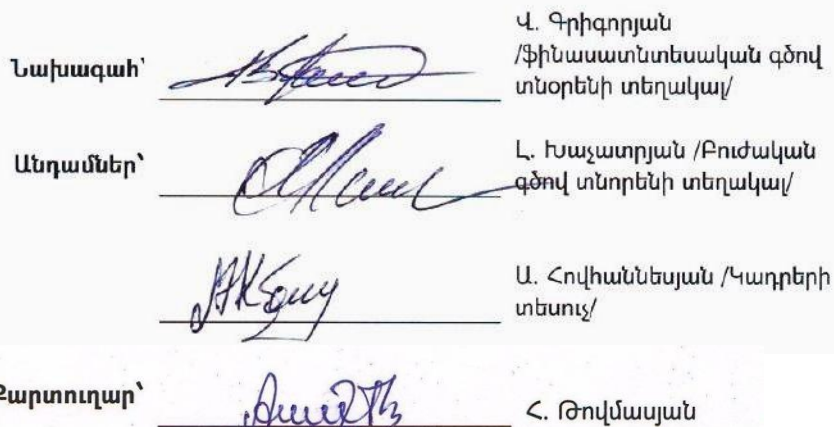 Վ. Գրիգորյան
Նախագահ՝ /ֆինասատնտեսական գծով
տնօրենի տեղակալ/
Անդամներ՝ Լ. Խաչատրյան /Բուժական
գծով տնորենի տեղակալ/
Ա. Հովհաննեսյան /Կադրերի
տեսուչ/
Քարտուղար՝ Հ. Թովմասյան